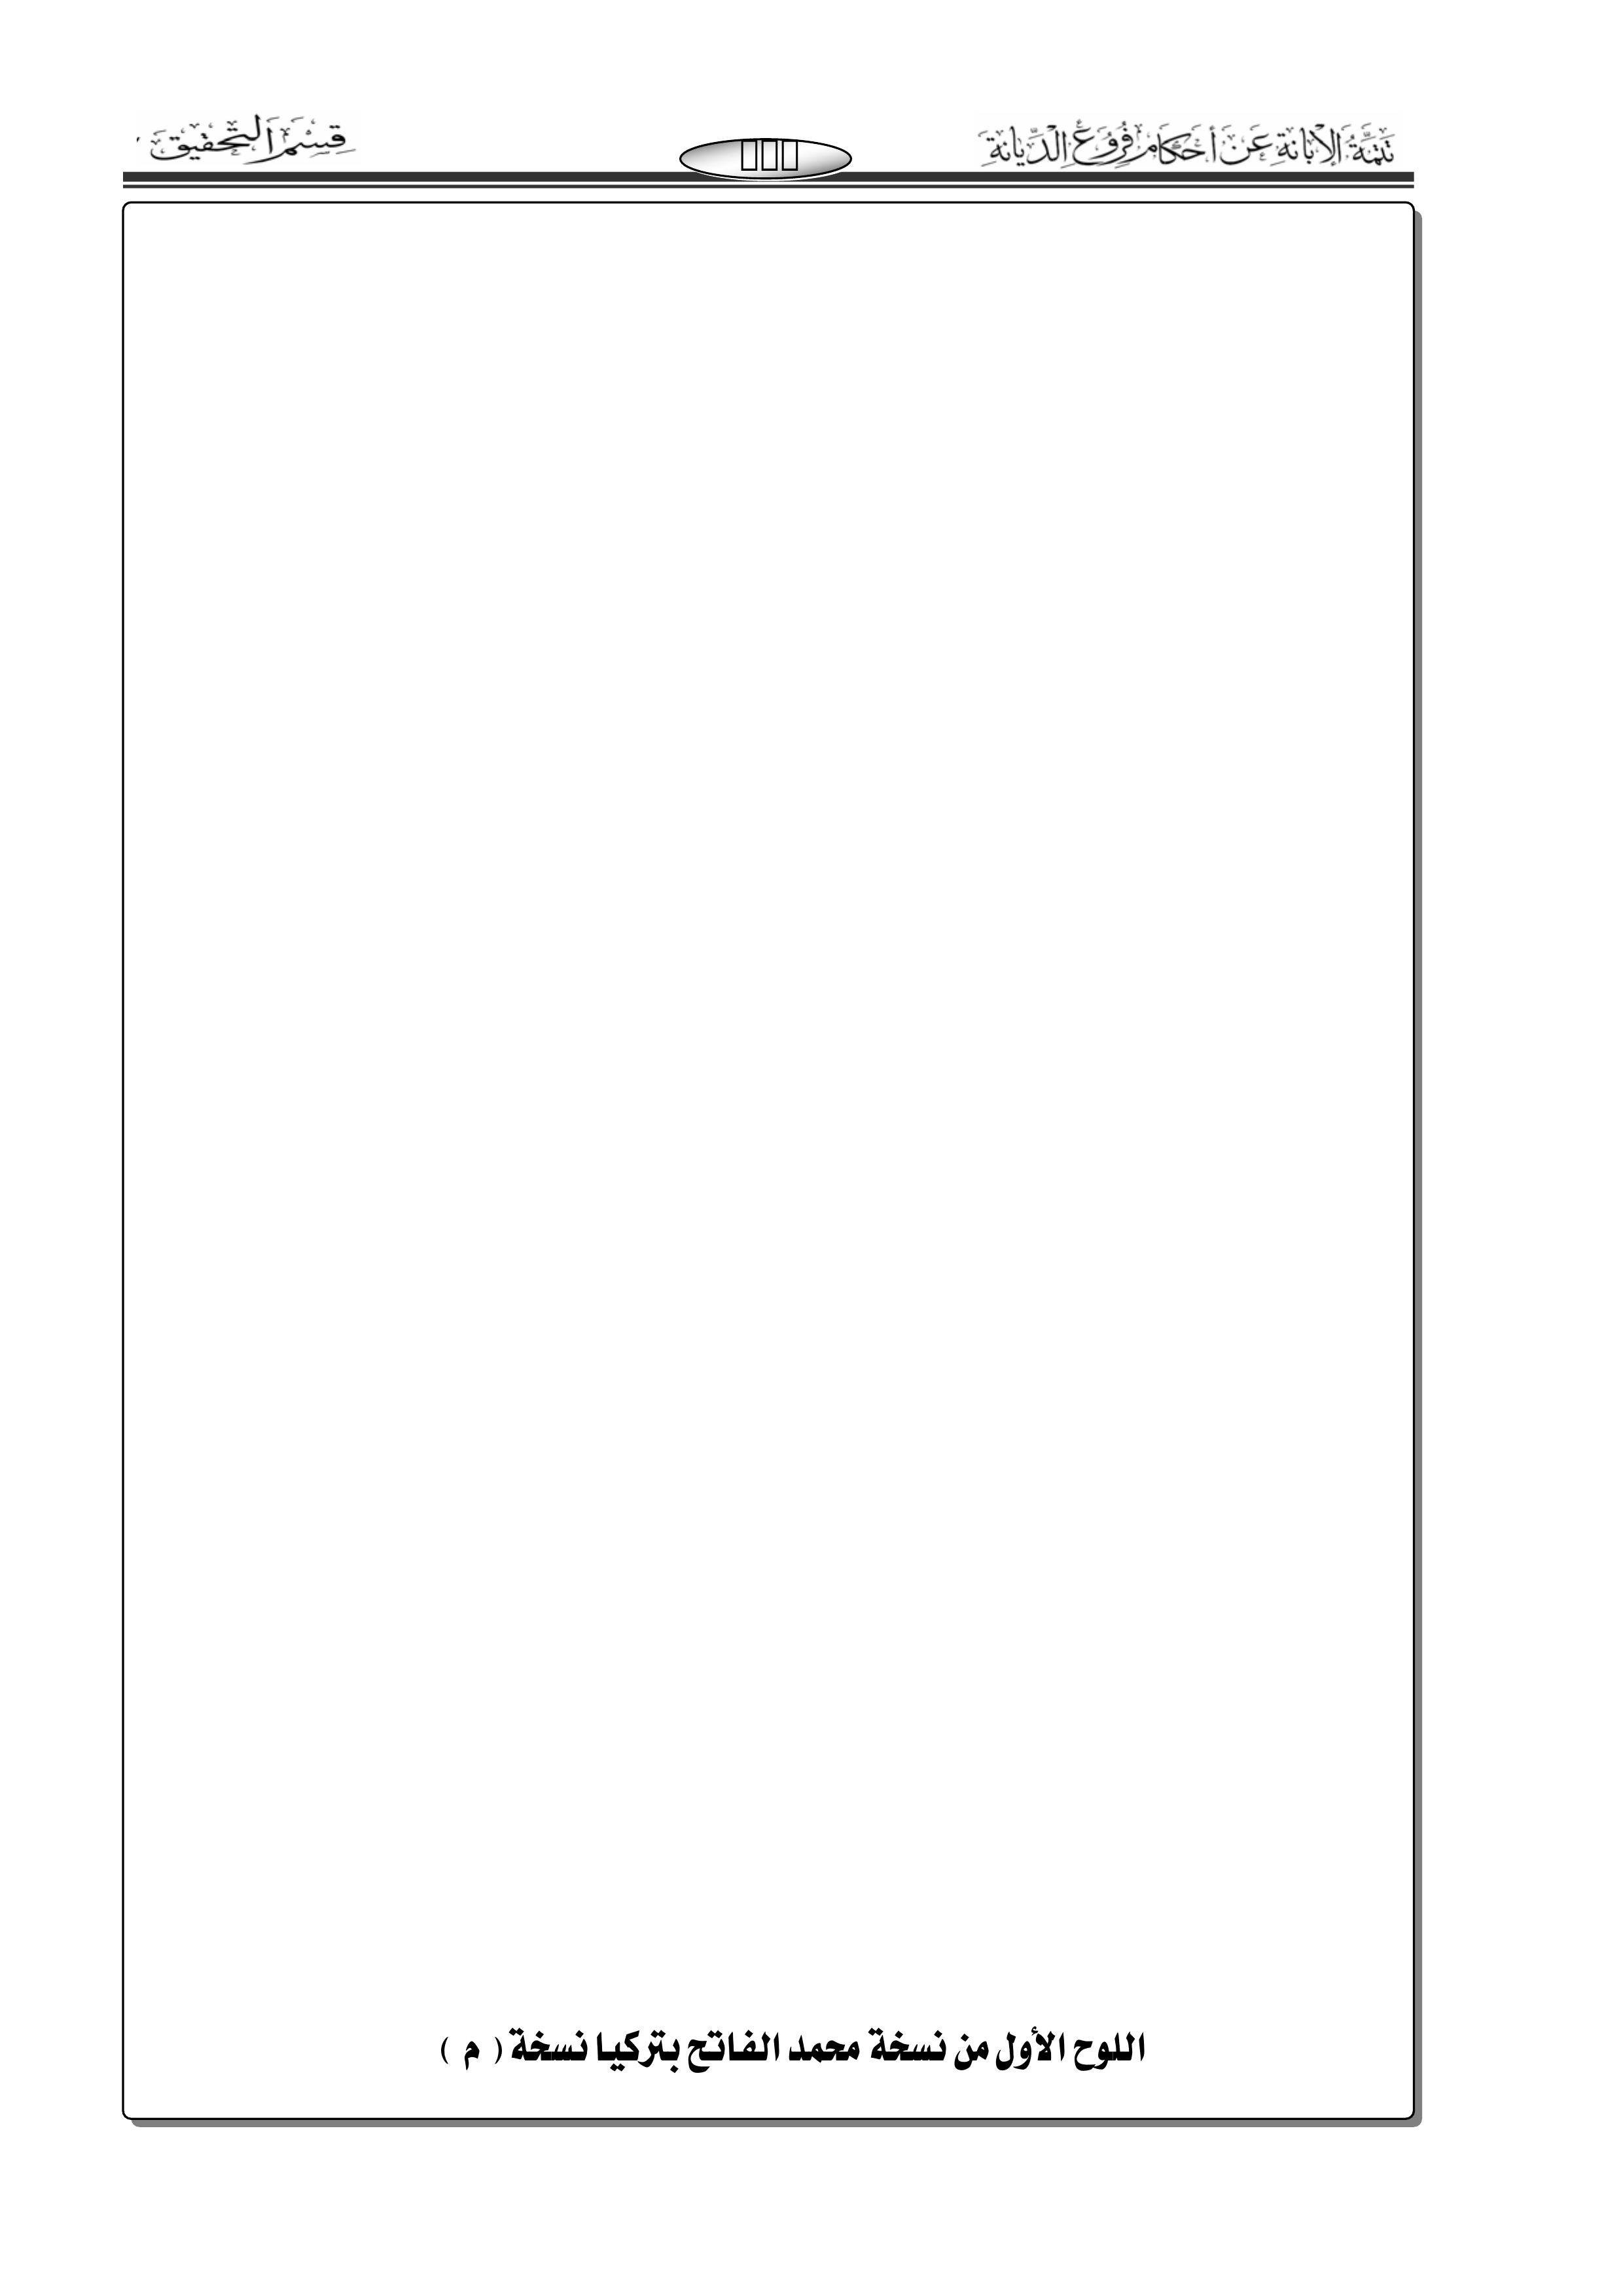 تَتِمَّةُ الإبَانَةِ عَنْ أَحْكَامِ فُرُوعِ الدِّيَانَةِ
قِسْمُ التَّحْقِيقِ
اللوح الأول من نسخة محمد الفاتح بتركيا نسخة ( م )